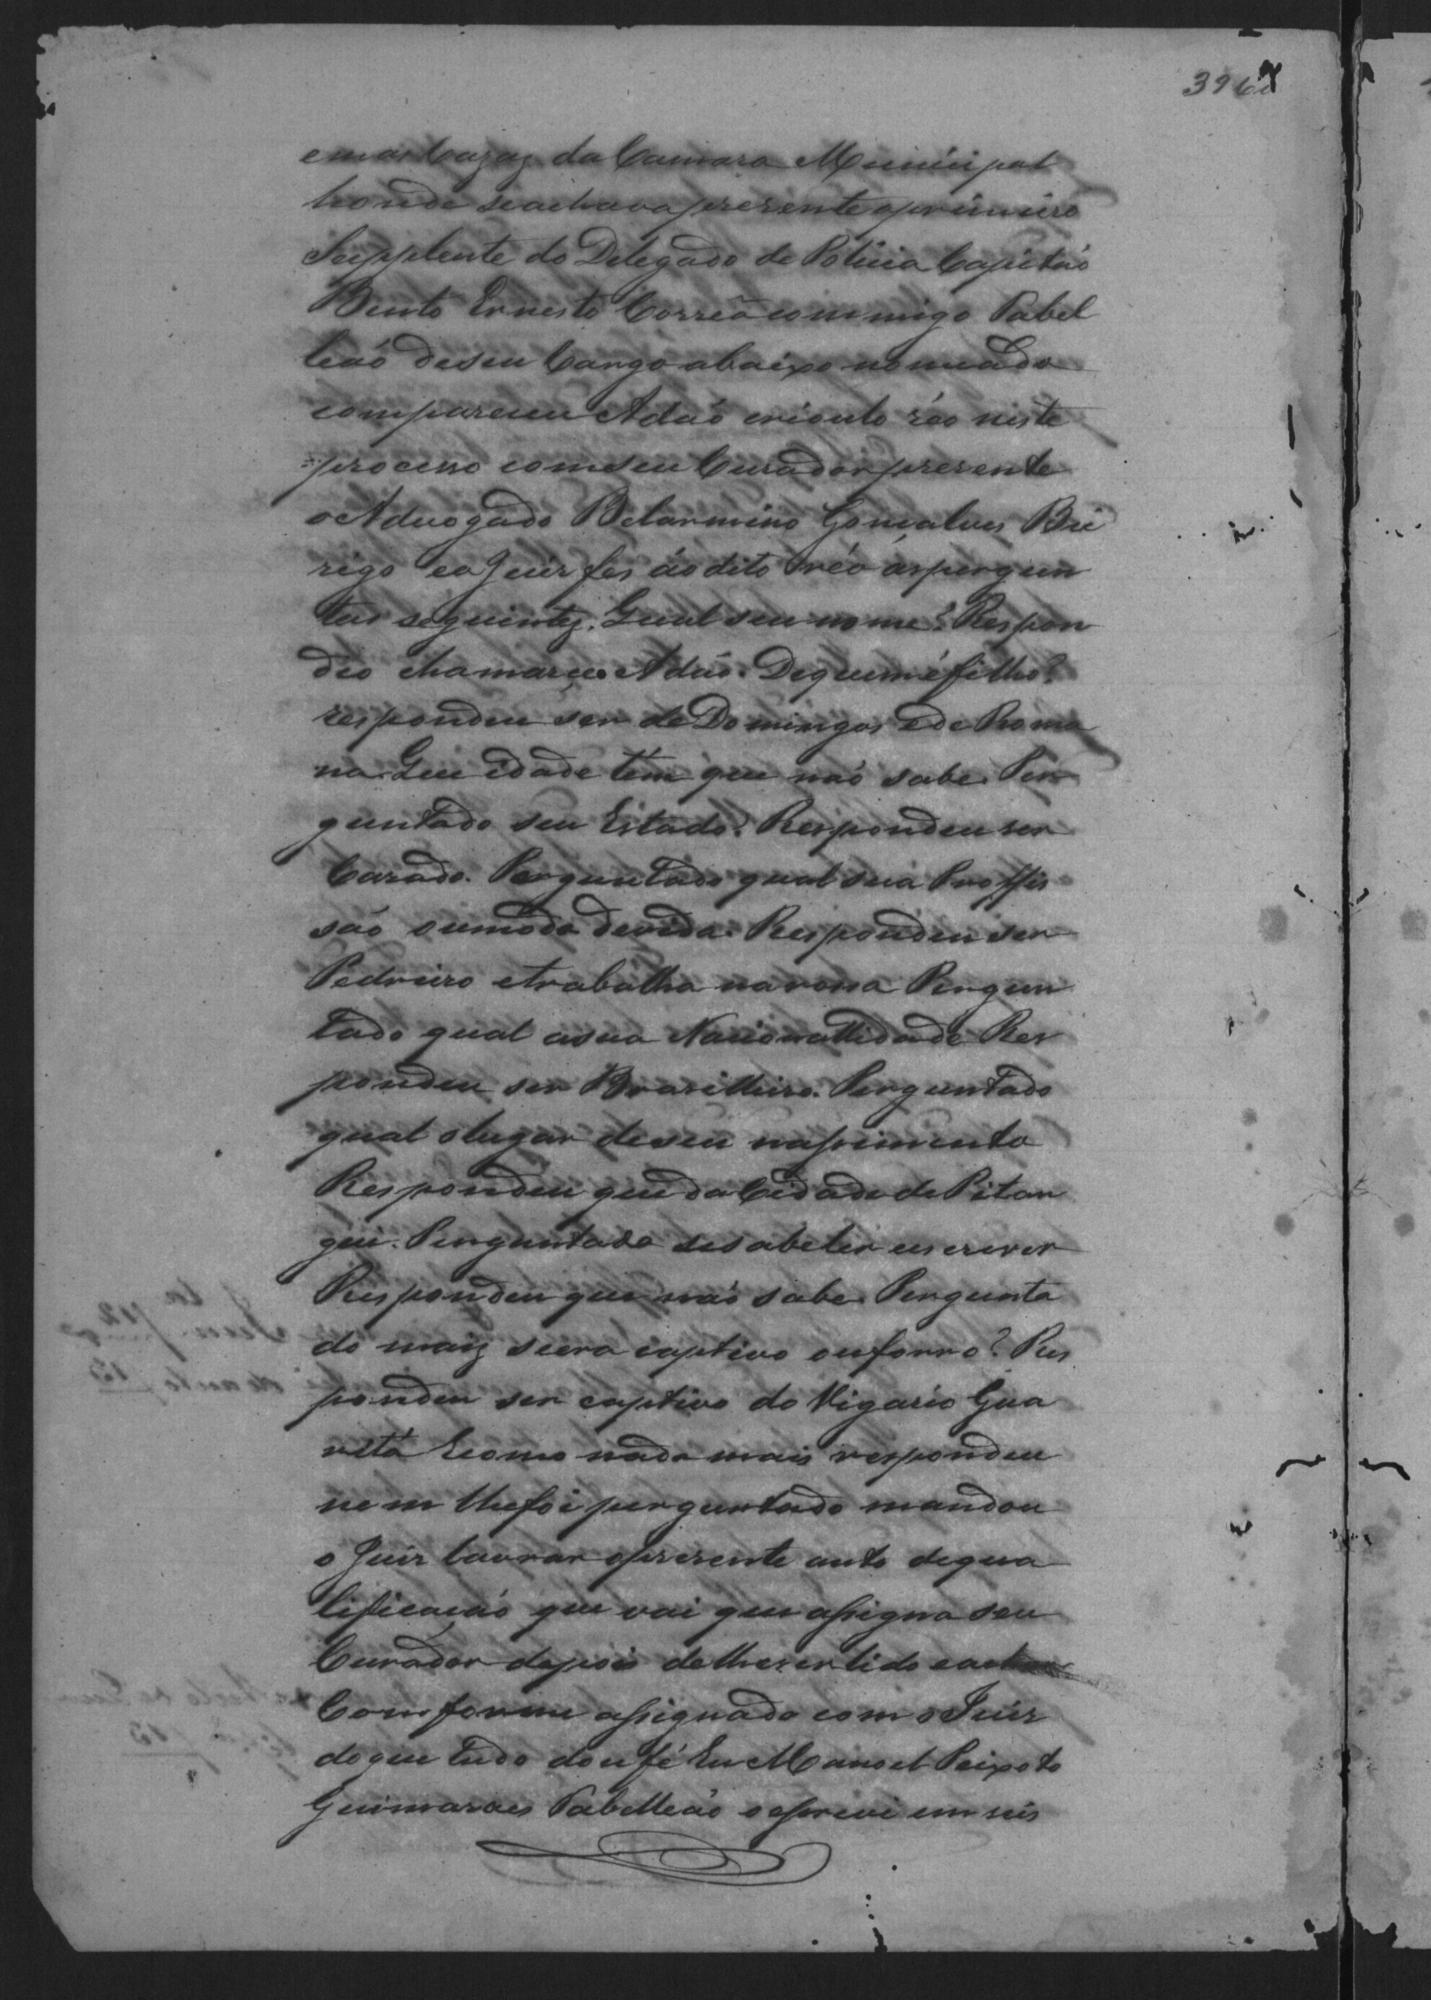 396
emas Cazaz da Camara Municipal
honde seachava presente oprimeiro
Supplente do Delegado de Policia Capitaõ
Bento Ernesto Corrêa commigo Tabel
leaõ deseu Cargo abaixo nomeado
compareceu Adaõ crioulo réo neste
processo comseu Curador presente
oAdvogado Belarmino Gonçalves Bri
rigo eoJuiz fes áodito réo áspergun
tas seguintez. Qual seu nome? Respon
deo chamarce Adaõ. Dequem éfilho?
respondeu ser de Domingos ede Roma
na. Que idade tem que naõ sabe. Per
guntado seu Estado? Respondeu ser
Cazado. Perguntado qual sua Proffis
saõ oumodo devida. Respondeu ser
Pedreiro etrabalha naroça Pergun
tado qual asua Nacionallidade Res
pondeu ser Brazilleiro. Perguntado
qual olugar deseu nassimento
Respondeu queda Cidade de Pitan
gui. Perguntado sesabeler eescrever
Respondeu que naõ sabe. Pergunta
do maiz seera captivo ouforro? Res
pondeu ser captivo do Vigario Gua
ritá Ecomo nada mais respondeu
nem lhefoi perguntado mandou
o Juiz lavrar opresente auto dequa
lificacaõ que vai que assigna seu
Curador depois delheserlido eachar
Comforme assignado com o Juiz
doque tudo doufé Eu Manoel Peixoto
Guimaraes Tabelleaõ oescrevi em seis